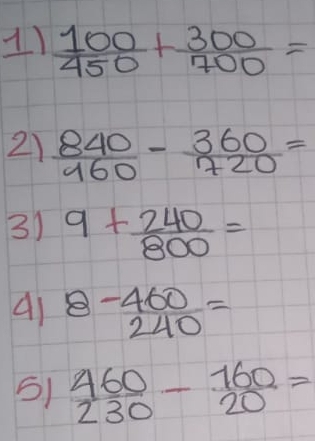 1) 100/450 + 300/700 =
2) 840/960 - 360/720 =
3) 9 + 240/800 =
4) 8 - 460/240 =
5) 460/230 - 160/20 =